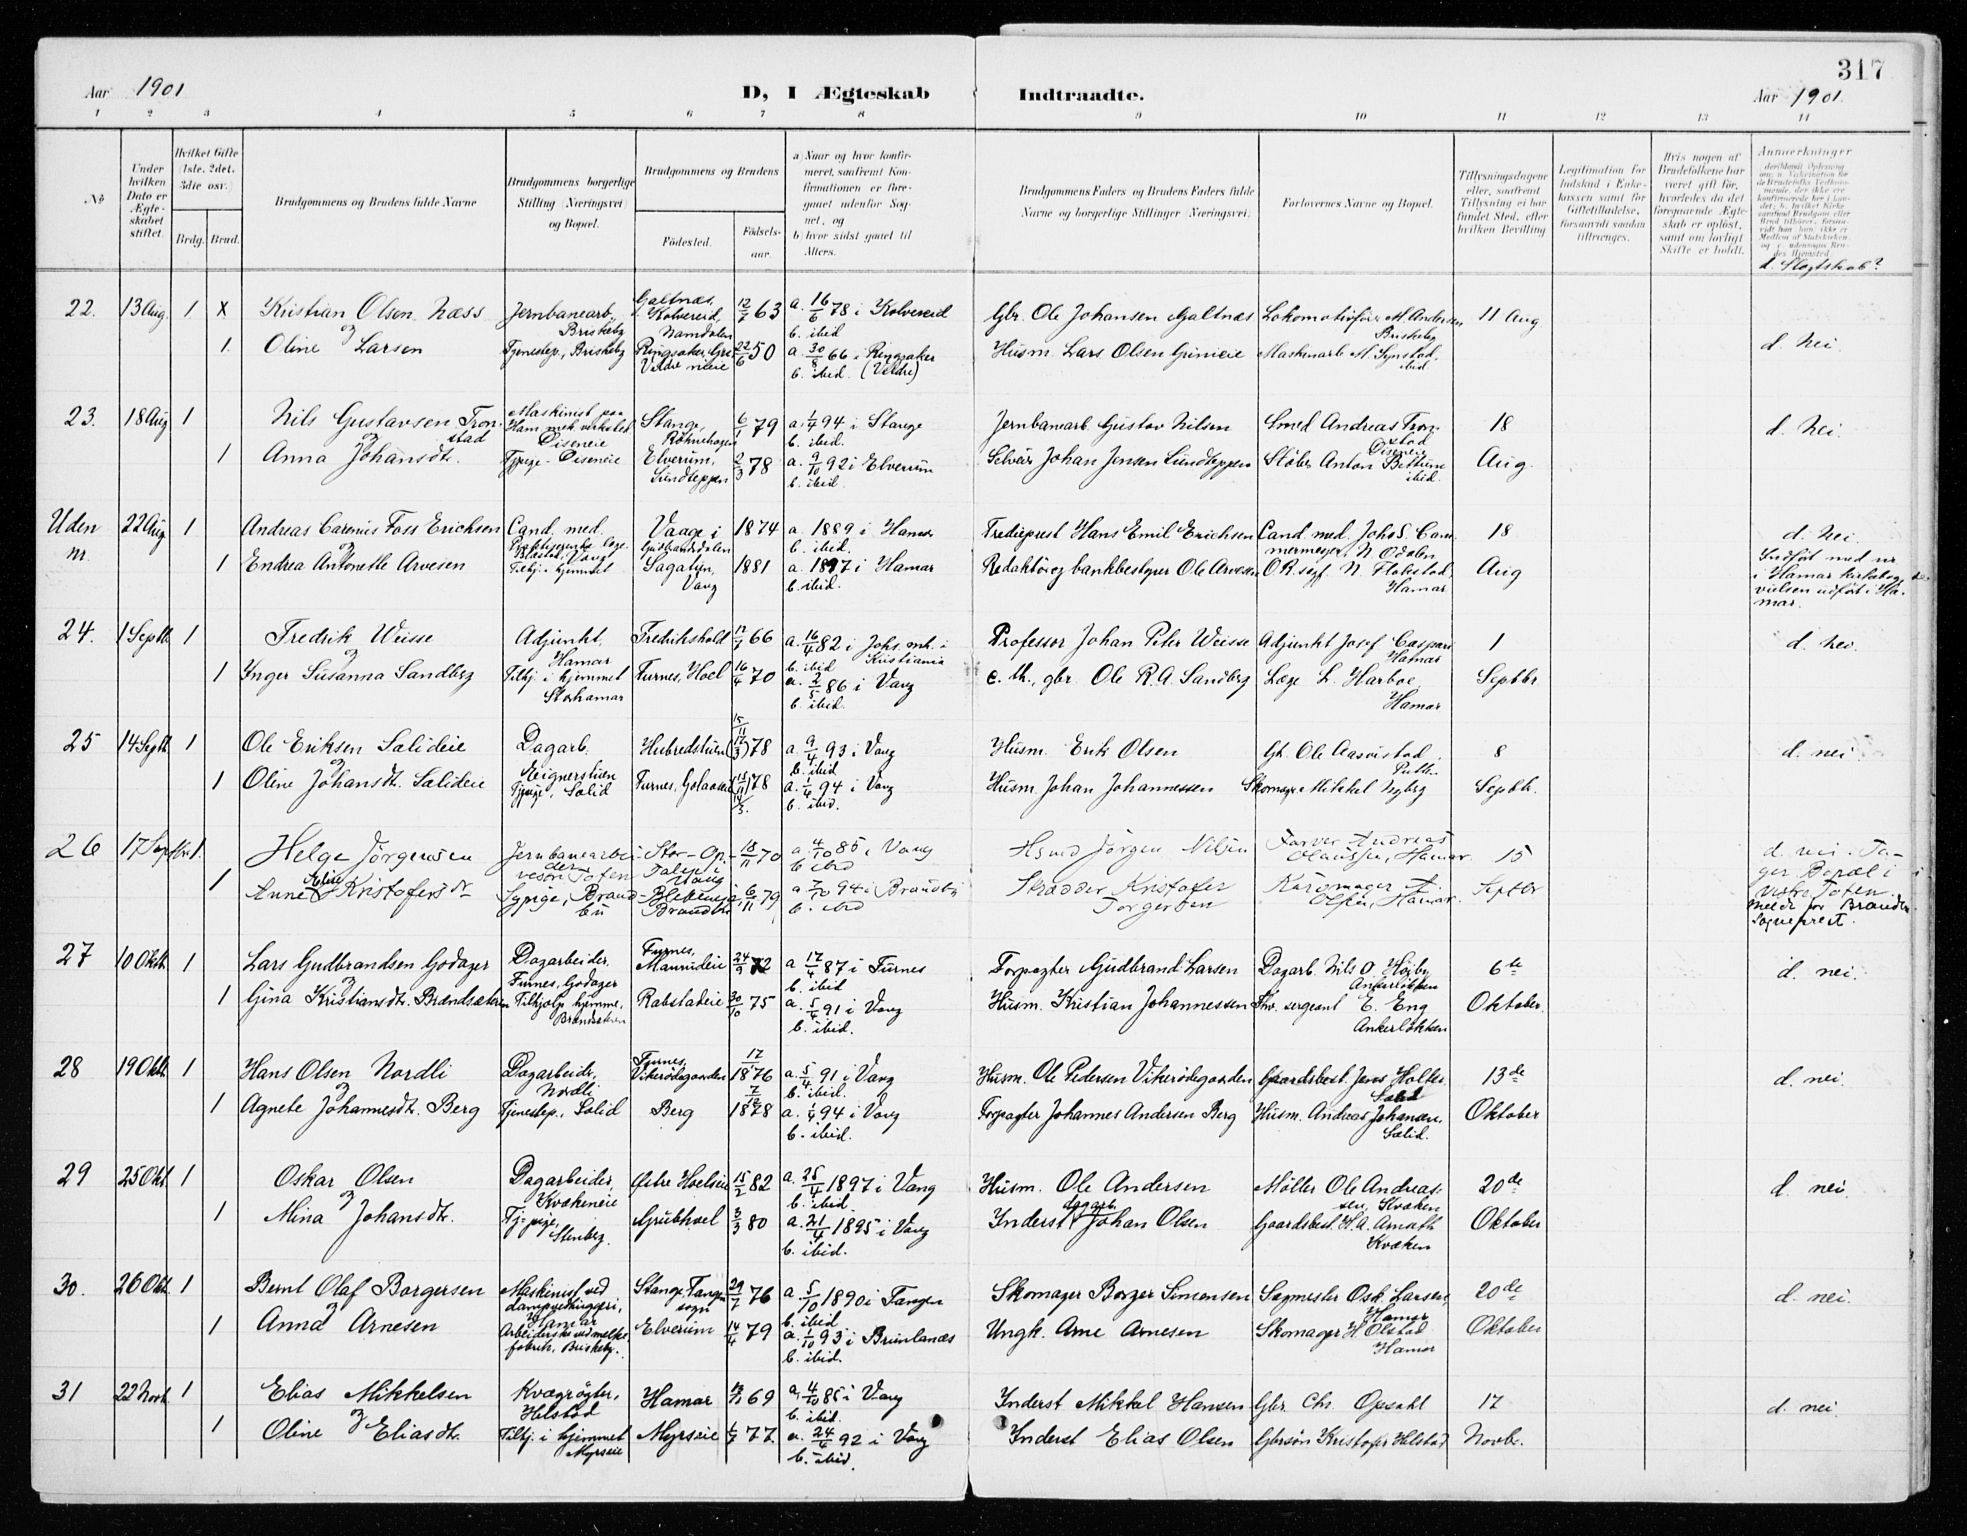 317
Aar 1901 D, I Ægteskab Indtraadte. Aar 1901.
1 2 3 4 5 6 7 8 9 10 11 12 13 14
No
Under hvilken Dato er Ægteskabet stiftet.
Hvilket Gifte (1ste, 2det, 3die osv.)
Brdg. Brud.
Brudgommens og Brudens fulde Navne
Brudgommens borgerlige Stilling (Næringsvei) og Bopæl.
Brudgommens og Brudens
Fødested. Fødselsaar.
a) Naar og hvor konfirmeret, saafremt Konfirmationen er foregaaet udenfor Sognet, og
b) hvor sidst gaaet til Alters.
Brudgommens Faders og Brudens Faders fulde Navne og borgerlige Stillinger (Næringsvei)
Forlovernes Navne og Bopæl.
Tillysningsdagene eller, saafremt Tillysning ei har fundet Sted, efter hvilken Bevilling
Legitimation for Indskud i Enkekassen samt for Giftetilladelse, forsaavidt saadan tiltrænges.
Hvis nogen af Brudefolkene har været gift før, hvorledes da det foregaaende Ægteskab er opløst, samt om lovligt Skifte er holdt.
Anmerkninger
d. Slegtskab?
22. 13 Aug. 1 x Kristian Olsen Næss Jernbanearb., Briskeby Galtnæs, Kolvereid, Namdalen 12/7 63 a. 16/6 78 i Kolvereid b. ibid Gbr. Ole Johansen Galtnæs Lokomotivfører M. Andersen Briskeby 11 Aug
og
1. Oline Larsen Tjenestep., Briskeby Ringsaker, Veldre 22/6 50 a. 66 i Ringsaker (Veldre) b. ibid. Husm. Lars Olsen Grinieie Maskinarb. M. ibid. d. nei.
23. 18 Aug 1 Nils Gustavsen Tronstad Maskinist paa Ham. mek. verksted Diseneie Stange, 6/1 79 a. 94 i Stange b. ibid. Jernbanearb. Gustav Nilsen Smed Andreas Tronstad Diseneie 18 d. nei.
og
1 Anna Johansdtr. Tjpige Diseneie Elverum, Lundteppen 2/3 78 a. 9/10 92 i Elverum b. ibid. Selveier Johan Jensen Lundteppen Støber Anton ibid. Aug.
Uden nr. 22 Aug 1 Andreas Carenius Foss Erichsen Cand. med. Vaage i Gudbrandsdalen 1874 a. 1889 i Hamar b. ibid. Trediepræst Hans Emil Erichsen Cand. med. Johs. Cammermeyer, N. Odalen 18 d. nei.
og
1 Endrea Antonette Arvesen Tilhj. i hjemmet Sagatun, Vang 1881 a. 1897 i Hamar b. ibid. Redaktør og bankbestyrer Ole Arvesen O.R. sagf. N. Hamar Aug Indført med nr i Hamar kirkebog, vielsen udført i Hamar.
24. 1 Septb. 1 Fredrik Weisse Adjunkt, Hamar Fredrikshald 66 a. 16/4 82 i Johs. mh. i Kristiania b. ibid Professor Johan Peter Weisse Adjunkt Josef Caspari Hamar 1 d. nei.
og
1 Inger Susanna Sandberg Tilhj. i hjemmet Storhamar Furnes, Hoel 16/4 70 a. 2/5 86 i Vang b. ibid. c. th., gbr. Ole R. A. Sandberg Læge L. Harboe, Hamar Septbr
25 14 Septb. 1 Ole Eriksen Salideie Dagarb. Hubredstuen 15/11 (17/3) 78 a. 9/4 93 i Vang b. ibid Husm. Erik Olsen Gb. Ole 8 d. nei.
og
1 Oline Johansdtr. Salideie Tjpige, Salid Furnes, 78 a. 94 i Vang b. ibid. Husm. Johan Johannessen Skomager Mikkel Nyberg Septbr.
26 17 Septbr. 1. Helge Jørgensen Jernbanearbeider vestre Toten Stor-Op-Falep i Vang 18/11 70 a. 4/10 85 i Vang b. ibid Husmd Jørgen Nilsen Farver Andreas Olaussen, Hamar 15 d. nei. Tager Bopæl i vestre Toten meldt for Brandbu Sogneprest.
1 Anne Eline Kristofersdtr Sypige, Brandbu Brandbu 6/11 79 a 94 i Brandbu b. ibid Skrædder Kristofer Torgersen Kurvmager A. Olsen, Hamar. Septbr
27 10 Oktb 1 Lars Gudbrandsen Godager Dagarbeider, Furnes, Godager Furnes, 24/9 72 a 17/4 87 i Furnes b. ibid Forpagter Gudbrand Larsen Dagarb. Nils O. Højby Ankerløkken 6te d. nei.
og
1 Gina Kristiansdtr. Brændsæteren Tilhjelp hjemme, Brændsæteren Rabstadeie 30/10 75 a. 5/4 91 i Vang b. ibid. Husm. Kristian Johannessen sergeant E. Eng Ankerløkken Oktober.
28 19 Oktb 1 Hans Olsen Nordli Dagarbeider, Nordli Furnes, Vikerødegaarden 17/ 1876 a. 5/4 91 i Vang b. ibid. Husm. Ole Pedersen Vikerødegaarden Gaardsbest. Jens Holter Salid 13de d. nei.
og
1 Agnete Johannesdtr. Berg Tjenestep., Salid Berg 1878 a. 94 i Vang b. ibid. Forpagter Johannes Andersen Berg Husm. Andreas Johansen, Salid. Oktober
29 25 Okt. 1 Oskar Olsen Dagarbeider, Kvækeneie Østre Hoelseie 15/2 82 a. 25/4 1897 i Vang b. ibid. Husm. Ole Andersen Møller Ole Andreassen, Kvæken 20de d. nei.
og
1 Mina Johansdtr. Tj-pige, Stenberg. Grubhoel 3/3 80 a. 21/4 1895 i Vang b. ibid. Inderst dagarb. Johan Olsen Gaardsbest. H. A. Amoth Kvæken Oktober
30. 26 Okt. 1 Bernt Olaf Borgersen Maskinist ved dampvedhuggeri, Hamar Stange, Tangen sogn 29/7 76 a. 5/10 1890 i Tangen b. ibid Skomager Borger Simensen Sagmester Osk. Larsen, Hamar 20de d. nei.
og
1 Anna Arnesen Arbeiderske ved melkefabrik, Briskeby. Elverum 14/4 79 a. 1/10 93 i Brunlanæs b. ibid. Ungk. Arne Arnesen Skomager H. Olstad Hamar Oktober
31 22 Novb. 1 Elias Mikkelsen Kvægrøgter, Helstad Hamar 69 a. 4/10 85 i Vang b. ibid. Inderst Mikkel Hansen Gbr. Chr. Opsahl 17 d. nei.
og
1 Oline Eliasdtr. Tilhj. i hjemmet Myrseie Myrseie 77. a. 24/4 92 i Vang b. ibid. Inderst Elias Olsen Gbrsøn Kristofer Helstad Novb.